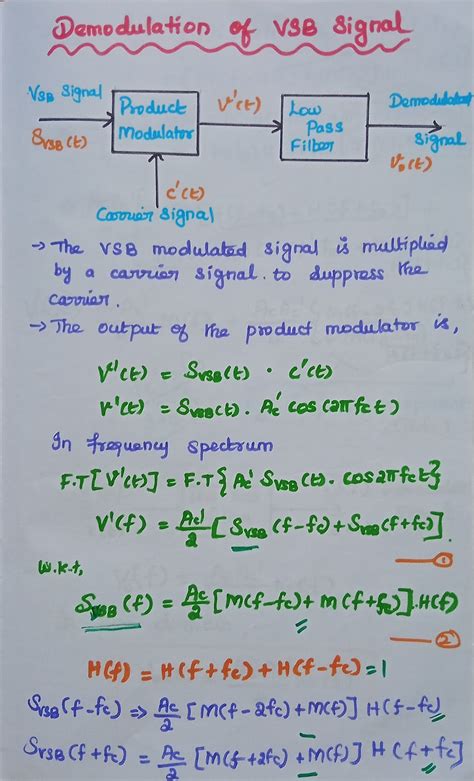 Demodulation of VSB Signal
VSB Signal
SVSB(t)
Product
Modulator
V'(t)
Low
Pass
Filter
Demodulated
Signal
Vo(t)
c'(t)
Carrier Signal
→ The VSB modulated signal is multiplied
by a carrier signal. to suppress the
carrier.
→ The output of the product modulator is,
V'(t) = SVSB(t) · c'(t)
V'(t) = SVSB(t). Ac' cos (2πfct)
In frequency spectrum
F.T[V'(t)] = F.T{Ac' SVSB(t). cos2πfct}
V'(f) = Ac'/2 [SVSB(f-fc) + SVSB(f+fc)].
①
w.k.t,
SVSB(f) = Ac/2 [M(f-fc) + M(f+fc)].H(f)
②
H(f) = H(f+fc) + H(f-fc) = 1
SVSB(f-fc) => Ac/2 [M(f-2fc) + M(f)] H(f-fc)
SVSB(f+fc) = Ac/2 [M(f+2fc) + M(f)] H(f+fc)